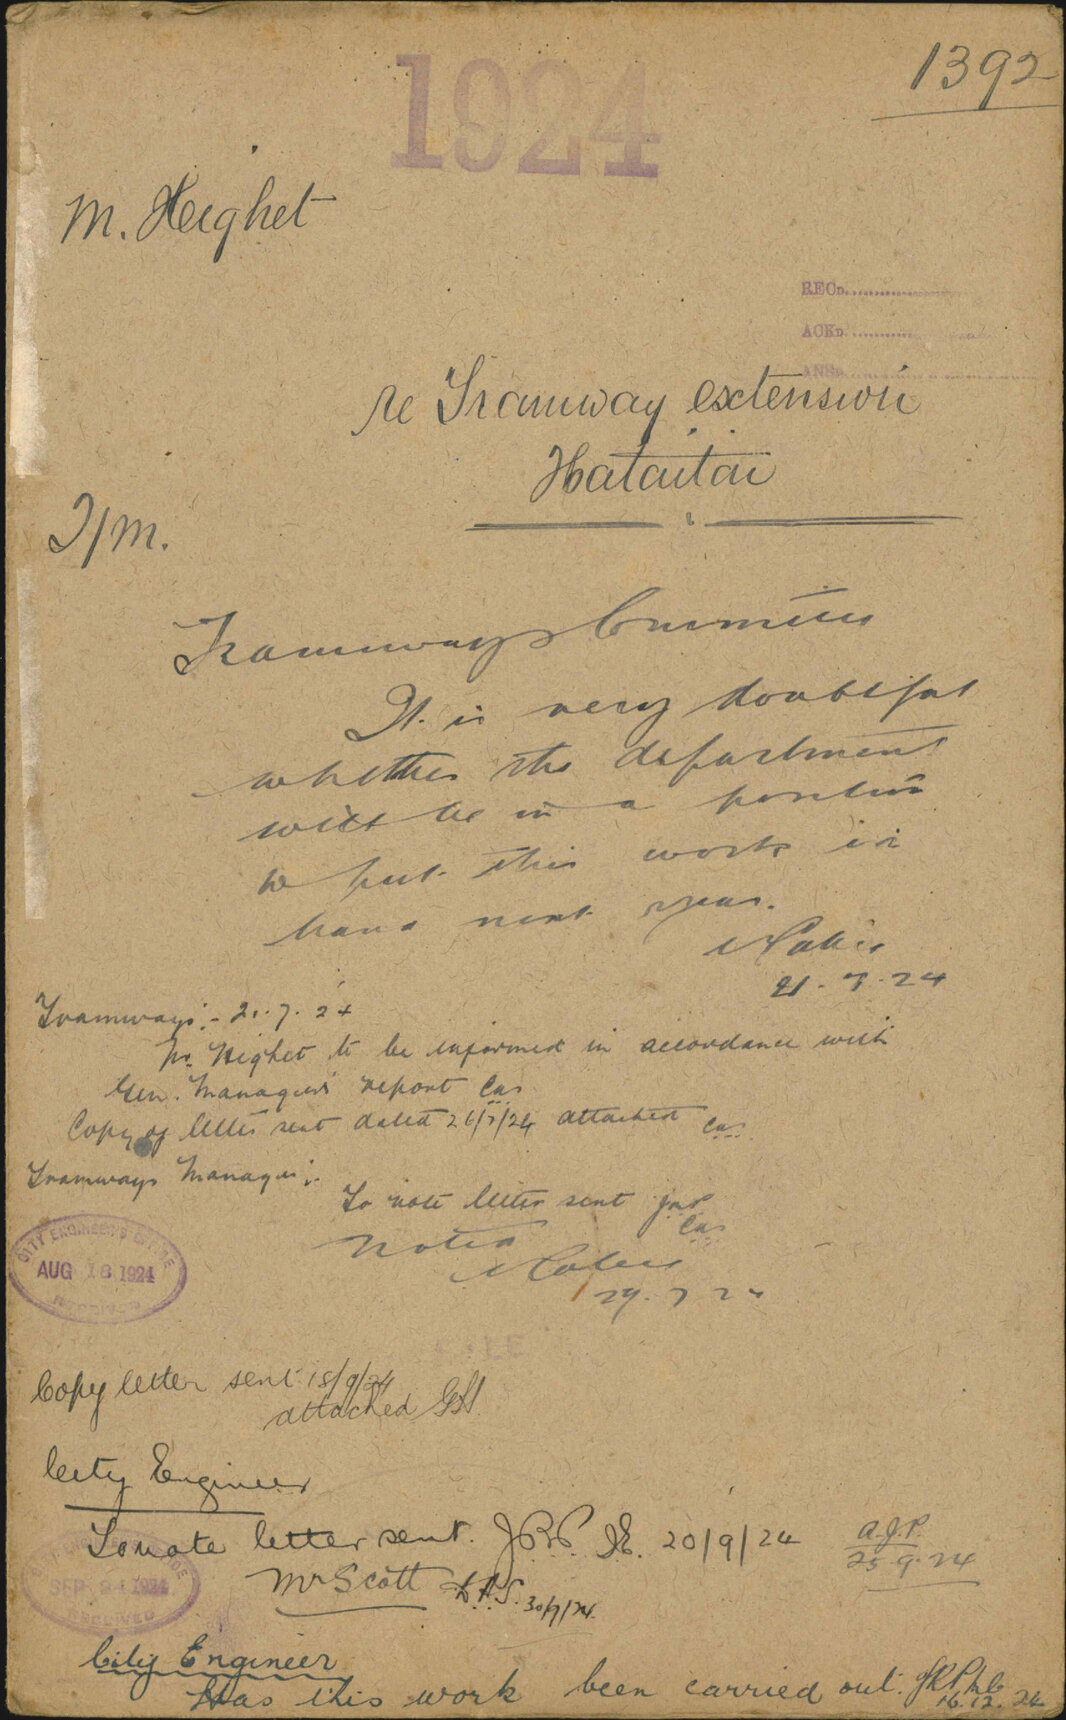 1392
1924
M. Heighet
RECD.
ACKD.
ANSD.
re Tramway extension
Hataitai
T/M.
Tramways Committee
It is very doubtful
whether the department
will be in a position
to put this work in
hand next year.
21.7.24
Tramways:- 21.7.24
Mr. Heighet to be informed in accordance with
Gen. Managers' report
Copy of letter sent dated 26/7/24 attached
Tramways Manager:
To note letter sent
Noted
29.7.24
CITY ENGINEER'S OFFICE
AUG 18 1924
RECEIVED
Copy letter sent 18/9/24
attached
City Engineer
To note letter sent. 20/9/24
A.J.P.
25.9.24
Mr Scott 30/9/24
CITY ENGINEER'S OFFICE
SEP 24 1924
RECEIVED
City Engineer
Has this work been carried out.
16.12.24